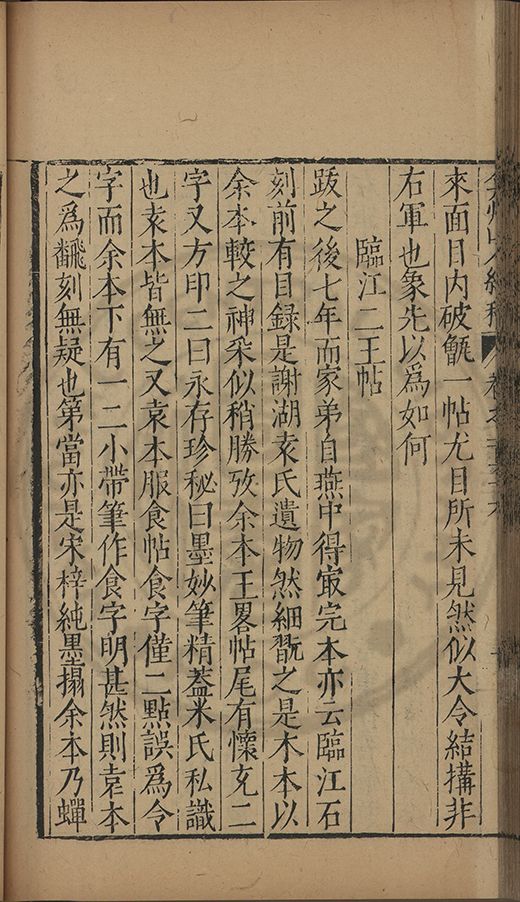 來面目内破甑一帖尤目所未見然似大令結搆非
右軍也象先以爲如何
臨江二王帖
跋之後七年而家弟自燕中得㝡完本亦云臨江石
刻前有目録是謝湖袁氏遺物然細翫之是木本以
余本較之神采似稍勝攷余本王畧帖尾有懷充二
字又方印二曰永存珍秘曰墨妙筆精葢米氏私識
也袁本皆無之又袁本服食帖食字僅二點誤爲令
字而余本下有一二小帶筆作食字明甚然則袁本
之爲飜刻無疑也第當亦是宋梓純墨搨余本乃蟬